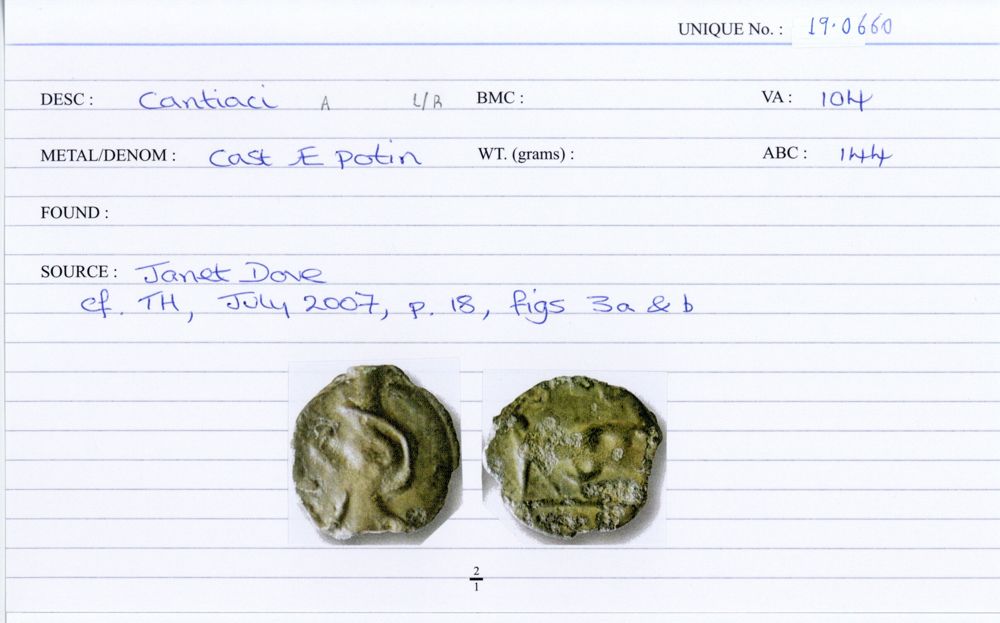 UNIQUE No. : 19.0660
DESC : Cantiaci A L/R BMC : VA : 104
METAL/DENOM : Cast Æ potin WT. (grams) : ABC : 144
FOUND :
SOURCE : Janet Dove
cf. TH, July 2007, p. 18, figs 3a & b
2
1